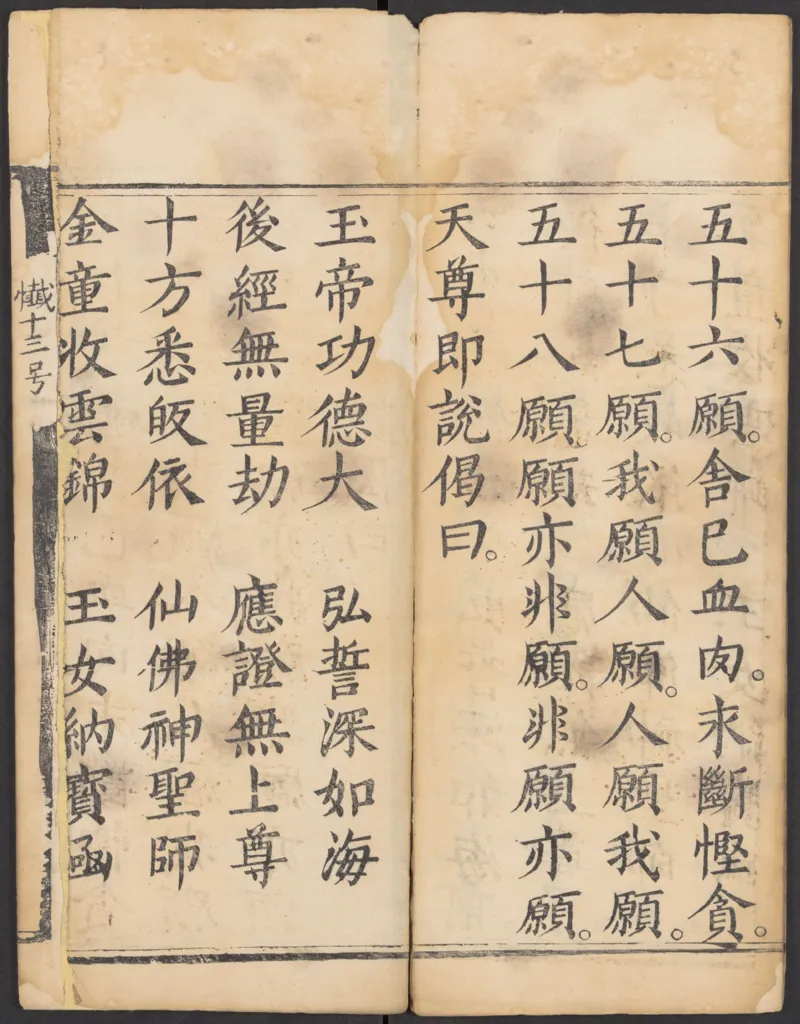 五十六願。舍已血肉。求斷慳貪。
五十七願。我願人願。人願我願。
五十八願。願亦非願。非願亦願。
天尊即說偈曰。
玉帝功德大　弘誓深如海
後經無量劫　應證無上尊
十方悉皈依　仙佛神聖師
金童收雲錦　玉女納寶函
懴十三号